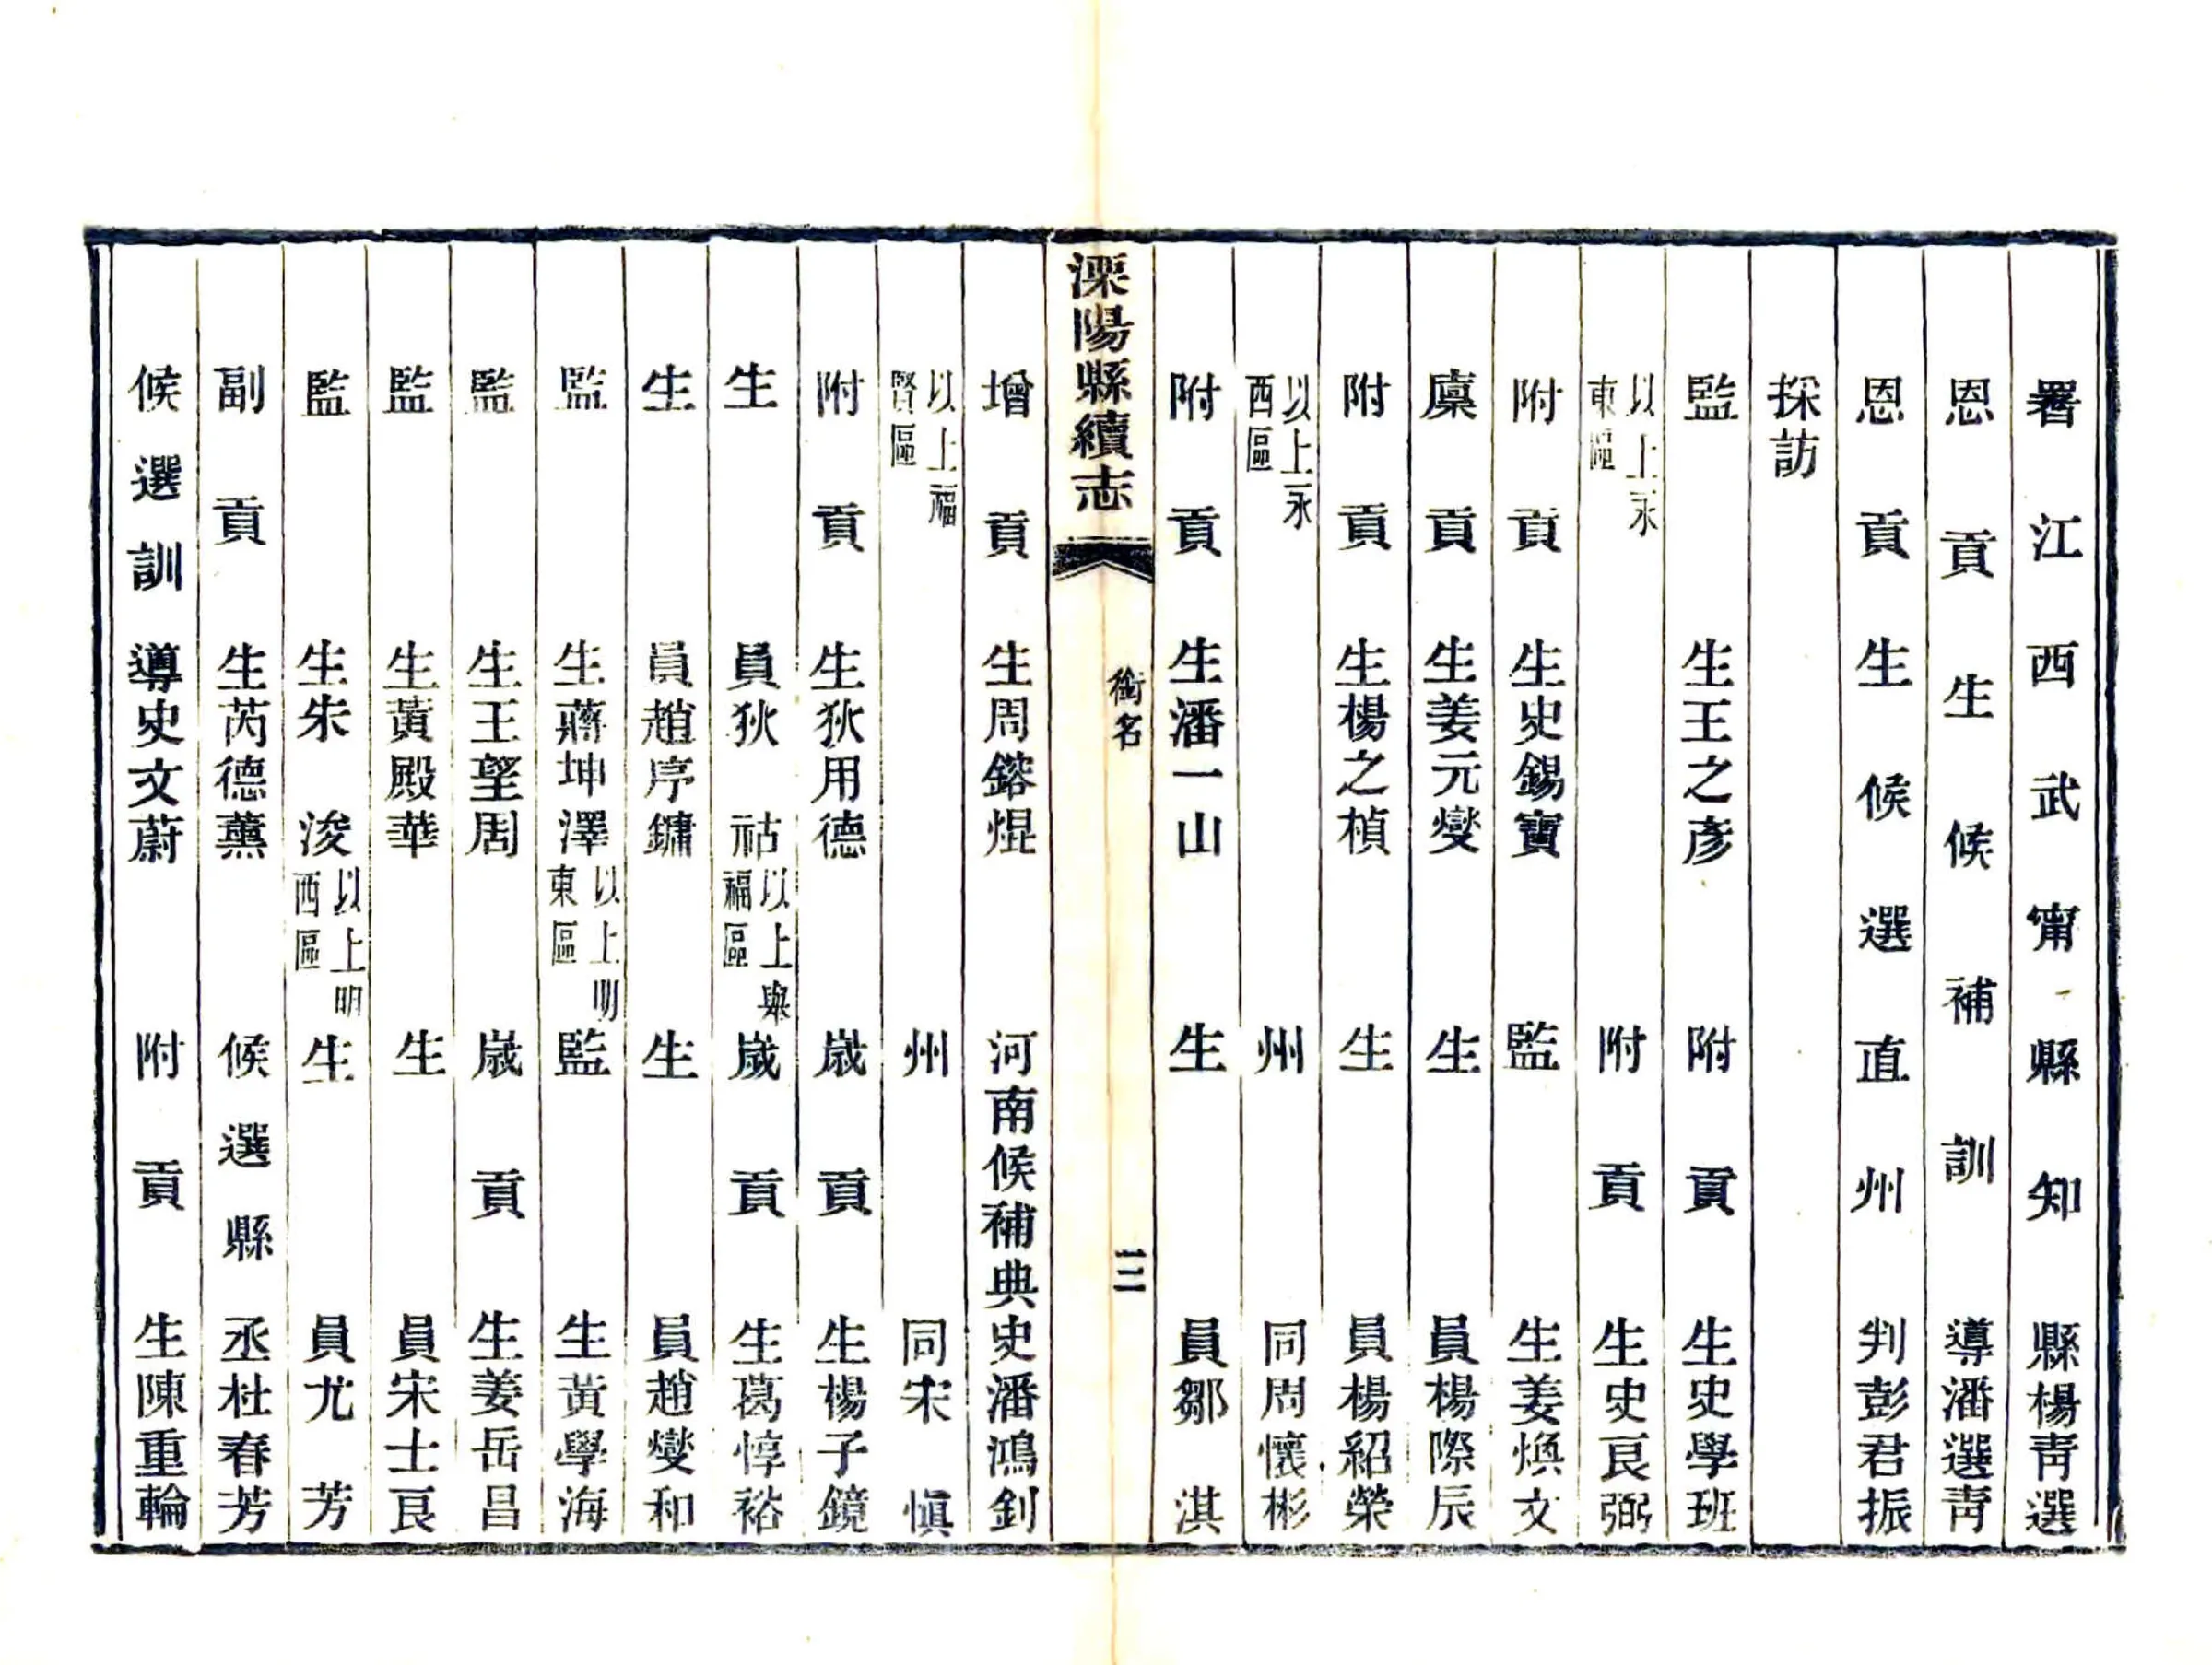 署江西武甯縣知縣楊青選
恩貢生候補訓導潘選青
恩貢生候選直州判彭君振
採訪
監生王之彥 附貢生史學班
以上永東區 附貢生史良弼
附貢生史錫寶 監生姜煥文
廩貢生姜元燮 生員楊際辰
附貢生楊之楨 生員楊紹榮
以上永西區 州同周懷彬
附貢生潘一山 生員鄒淇
溧陽縣續志 銜名 三
增貢生周鎔焜 河南候補典史潘鴻釗
以上福賢區 州同宋愼
附貢生狄用德 歲貢生楊子鏡
生員狄祜以上舉福區 歲貢生葛惇裕
生員趙序鏞 生員趙燮和
監生蔣坤澤以上明東區 監生黃學海
監生王望周 歲貢生姜岳昌
監生黃殿華 生員宋士良
監生朱浚以上明西區 生員尤芳
副貢生芮德薰 候選縣丞杜春芳
候選訓導史文蔚 附貢生陳重輪